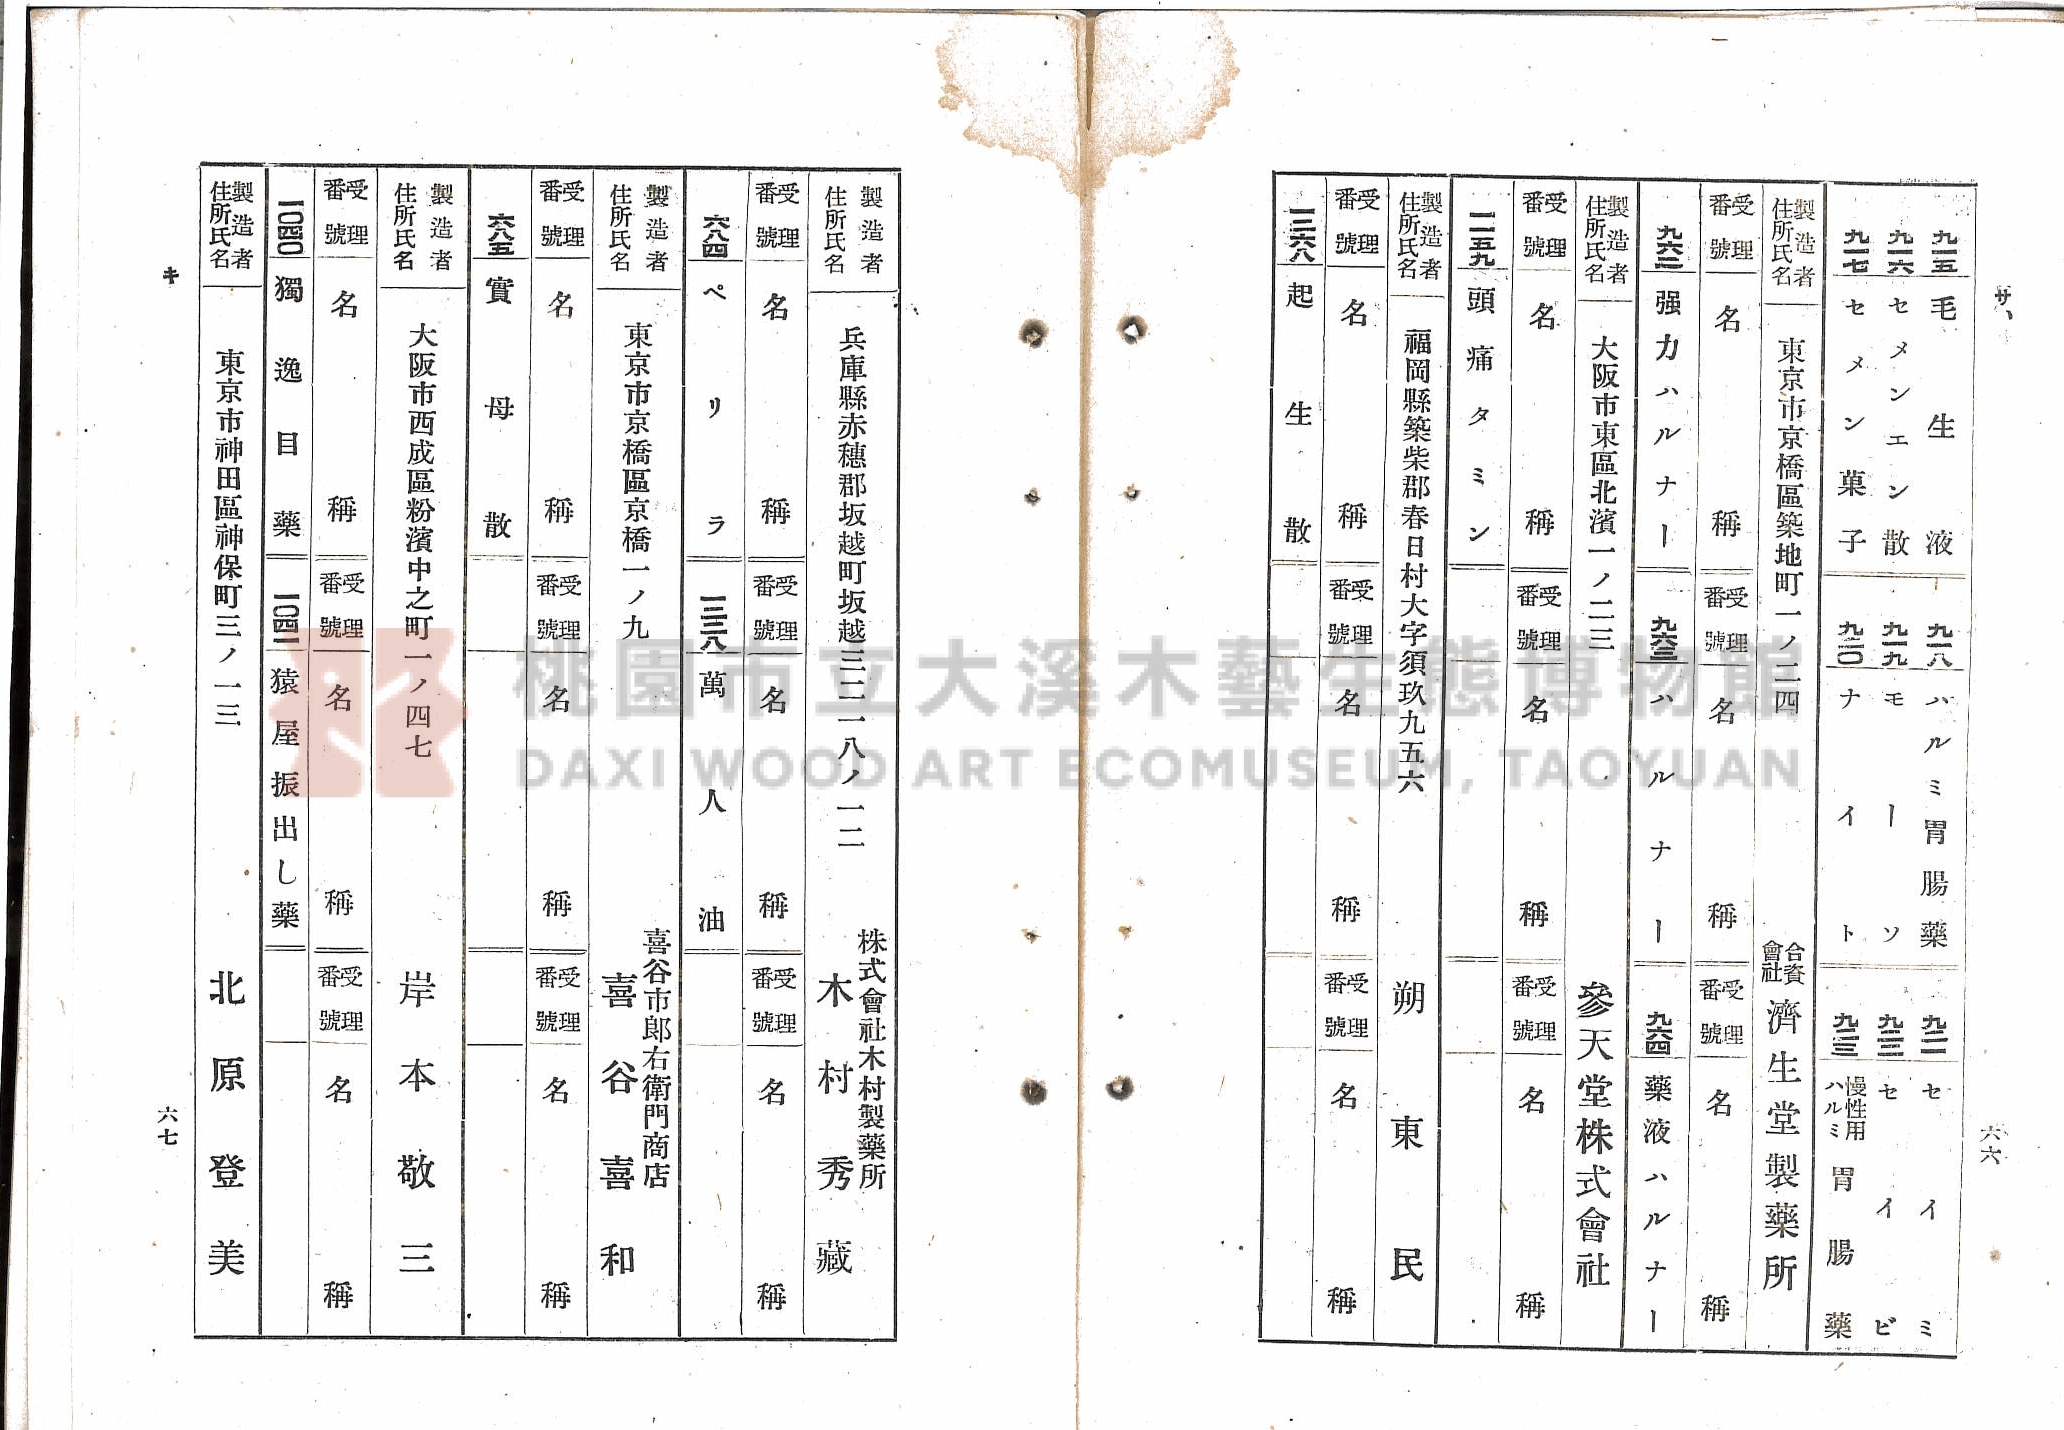 サ、
六六
九一五 毛生液
九一八 ハルミ胃腸藥
九二一 セイミ
九一六 セメンエン散
九一九 モーソ
九二二 セイビ
九一七 セメン菓子
九二〇 ナイト
九二三 慢性用ハルミ胃腸藥
製造者住所氏名 東京市京橋區築地町一ノ二四 合資會社 濟生堂製藥所
受理番號 名稱 受理番號 名稱 受理番號 名稱
九六二 强力ハルナー
九六三 ハルナー
九六四 藥液ハルナー
製造者住所氏名 大阪市東區北濱一ノ二三 參天堂株式會社
受理番號 名稱 受理番號 名稱 受理番號 名稱
一一五九 頭痛タミン
製造者住所氏名 福岡縣築柴郡春日村大字須玖九五六 朔東民
受理番號 名稱 受理番號 名稱 受理番號 名稱
一二六八 起生散
製造者住所氏名 兵庫縣赤穗郡坂越町坂越三二一八ノ一二 株式會社木村製藥所 木村秀藏
受理番號 名稱 受理番號 名稱 受理番號 名稱
六八四 ペリラ
一三三八 萬人油
製造者住所氏名 東京市京橋區京橋一ノ九 喜谷市郎右衛門商店 喜谷喜和
受理番號 名稱 受理番號 名稱 受理番號 名稱
六八五 實母散
製造者住所氏名 大阪市西成區粉濱中之町一ノ四七 岸本敬三
受理番號 名稱 受理番號 名稱 受理番號 名稱
一〇四〇 獨逸目藥
一〇四一 猿屋振出し藥
製造者住所氏名 東京市神田區神保町三ノ一三 北原登美
キ
六七
桃園市立大溪木藝生態博物館
DAXI WOOD ART ECOMUSEUM, TAOYUAN